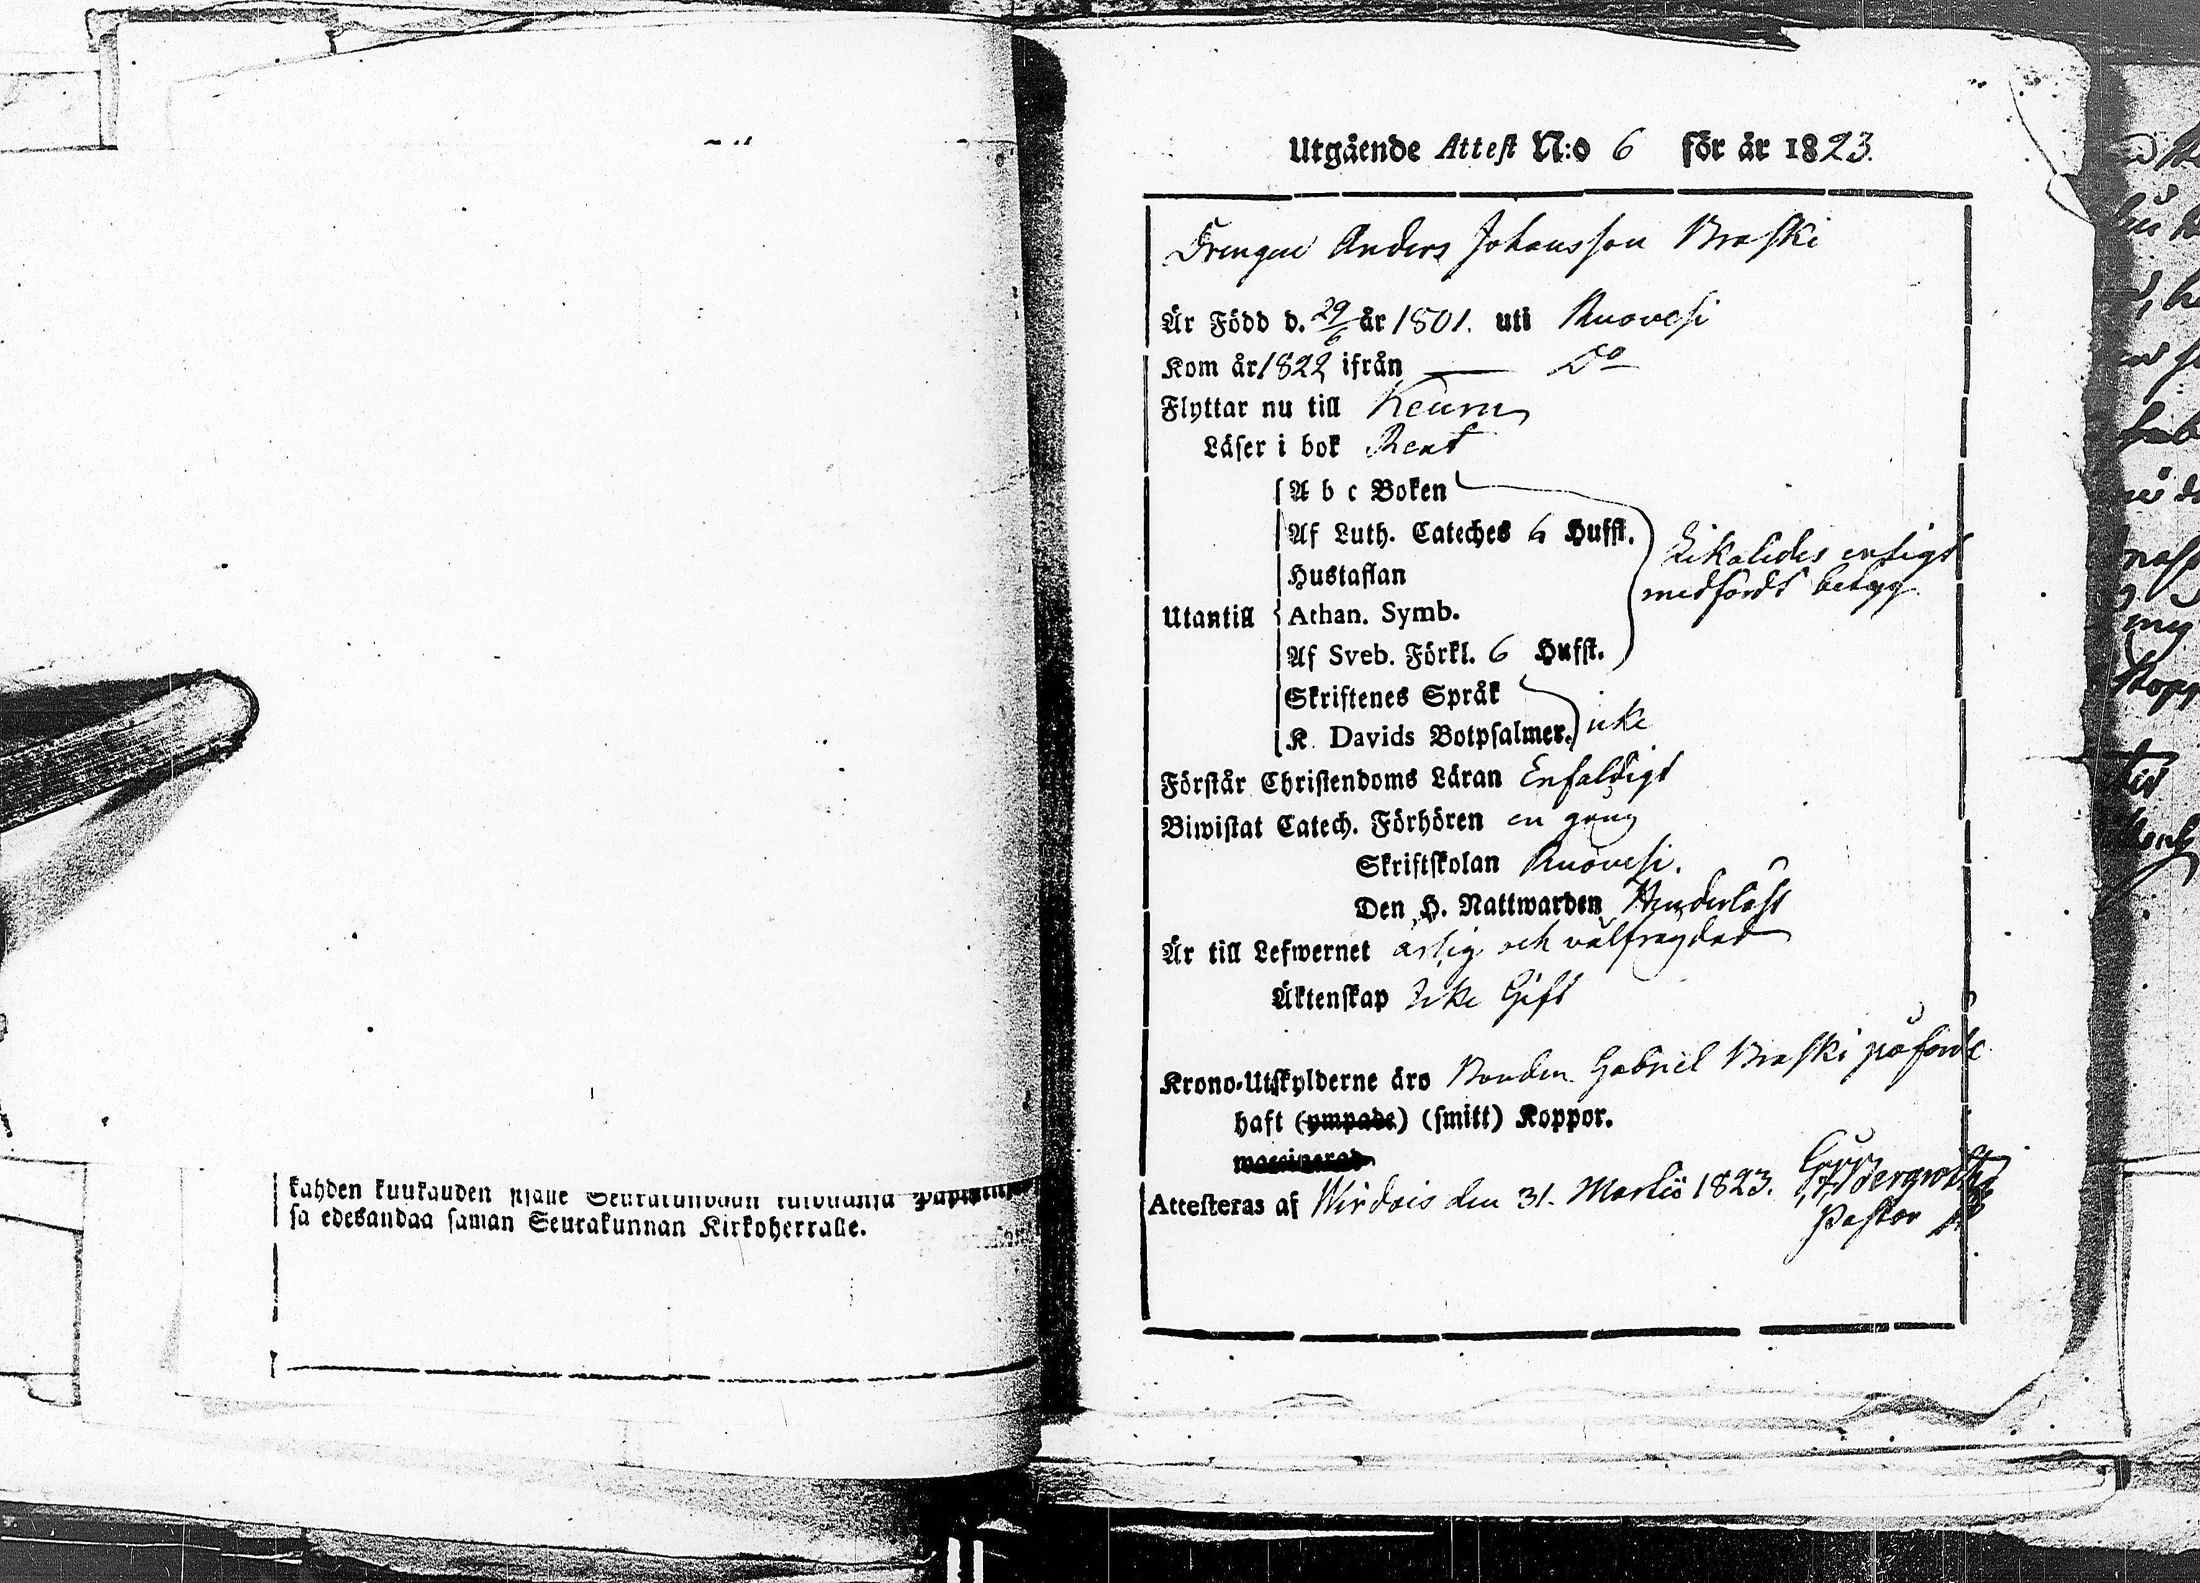 kahden kuukauden sisälle Seurakundaan
sa edesandaa saman Seurakunnan Kirkoherralle.
Utgående Attest N:o 6 för år 1823.
Drengen Anders Johansson Braski
Är Född d. 29/6 år 1801. uti Ruovesi
Kom år 1822 ifrån — Do
Flyttar nu till Keuru
Läser i bok Rent
A b c Boken
Af Luth. Cateches 6 Hufst.
Hustaflan
Utantill Athan. Symb.
Af Sveb. Förkl. 6 Hufst.
medfördt betyg
Skriftenes Språk
K. Davids Botpsalmer. icke
Förstår Christendoms Läran Enfaldigt
Biwistat Catech. Förhören en gång
Skriftskolan Ruovesi.
Den H. Nattwarden
Är till Lefwernet ärlig och välfrägdad
Äktenskap Icke Gift
Krono-Utskylderne äro Bonden Gabriel Braski påförde
haft (ympade) (smitt) Koppor.
waccinerad
Attesteras af Wirdois den 31. Martii 1823. Bergroth
Pastor